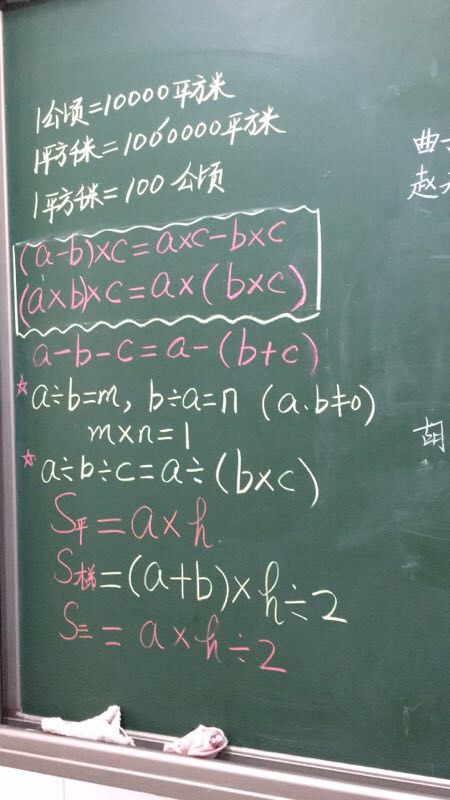 1公顷=10000平方米
1平方千米=1000000平方米
1平方千米=100公顷
(a-b)×c=a×c-b×c
(a×b)×c=a×(b×c)
a-b-c=a-(b+c)
☆a÷b=m, b÷a=n (a.b≠0)
m×n=1
☆a÷b÷c=a÷(b×c)
S平=a×h
S梯=(a+b)×h÷2
S三=a×h÷2
曲
赵
胡